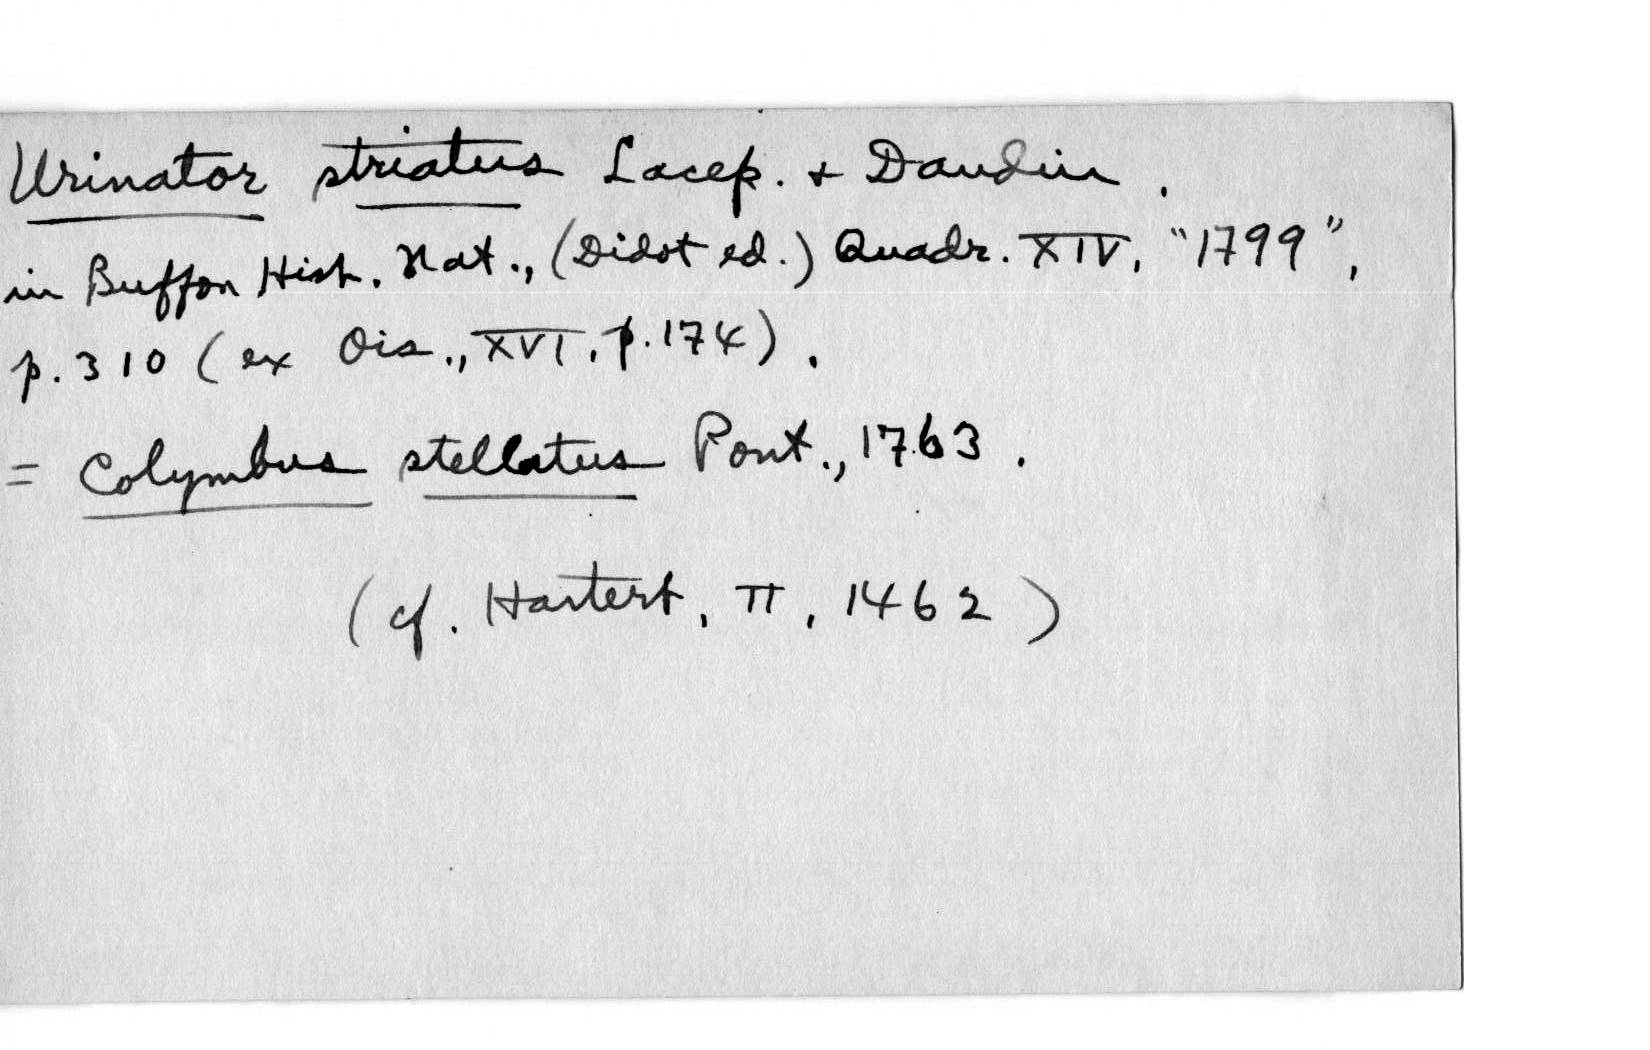 Urinator striatus Lacep. + Daudin.
in Buffon Hist. Nat., (Didot ed.) Quadr. XIV, "1799",
p. 310 (ex Ois., XVI, p. 174).
= Colymbus stellatus Pont., 1763.
(cf. Hartert, II, 1462)